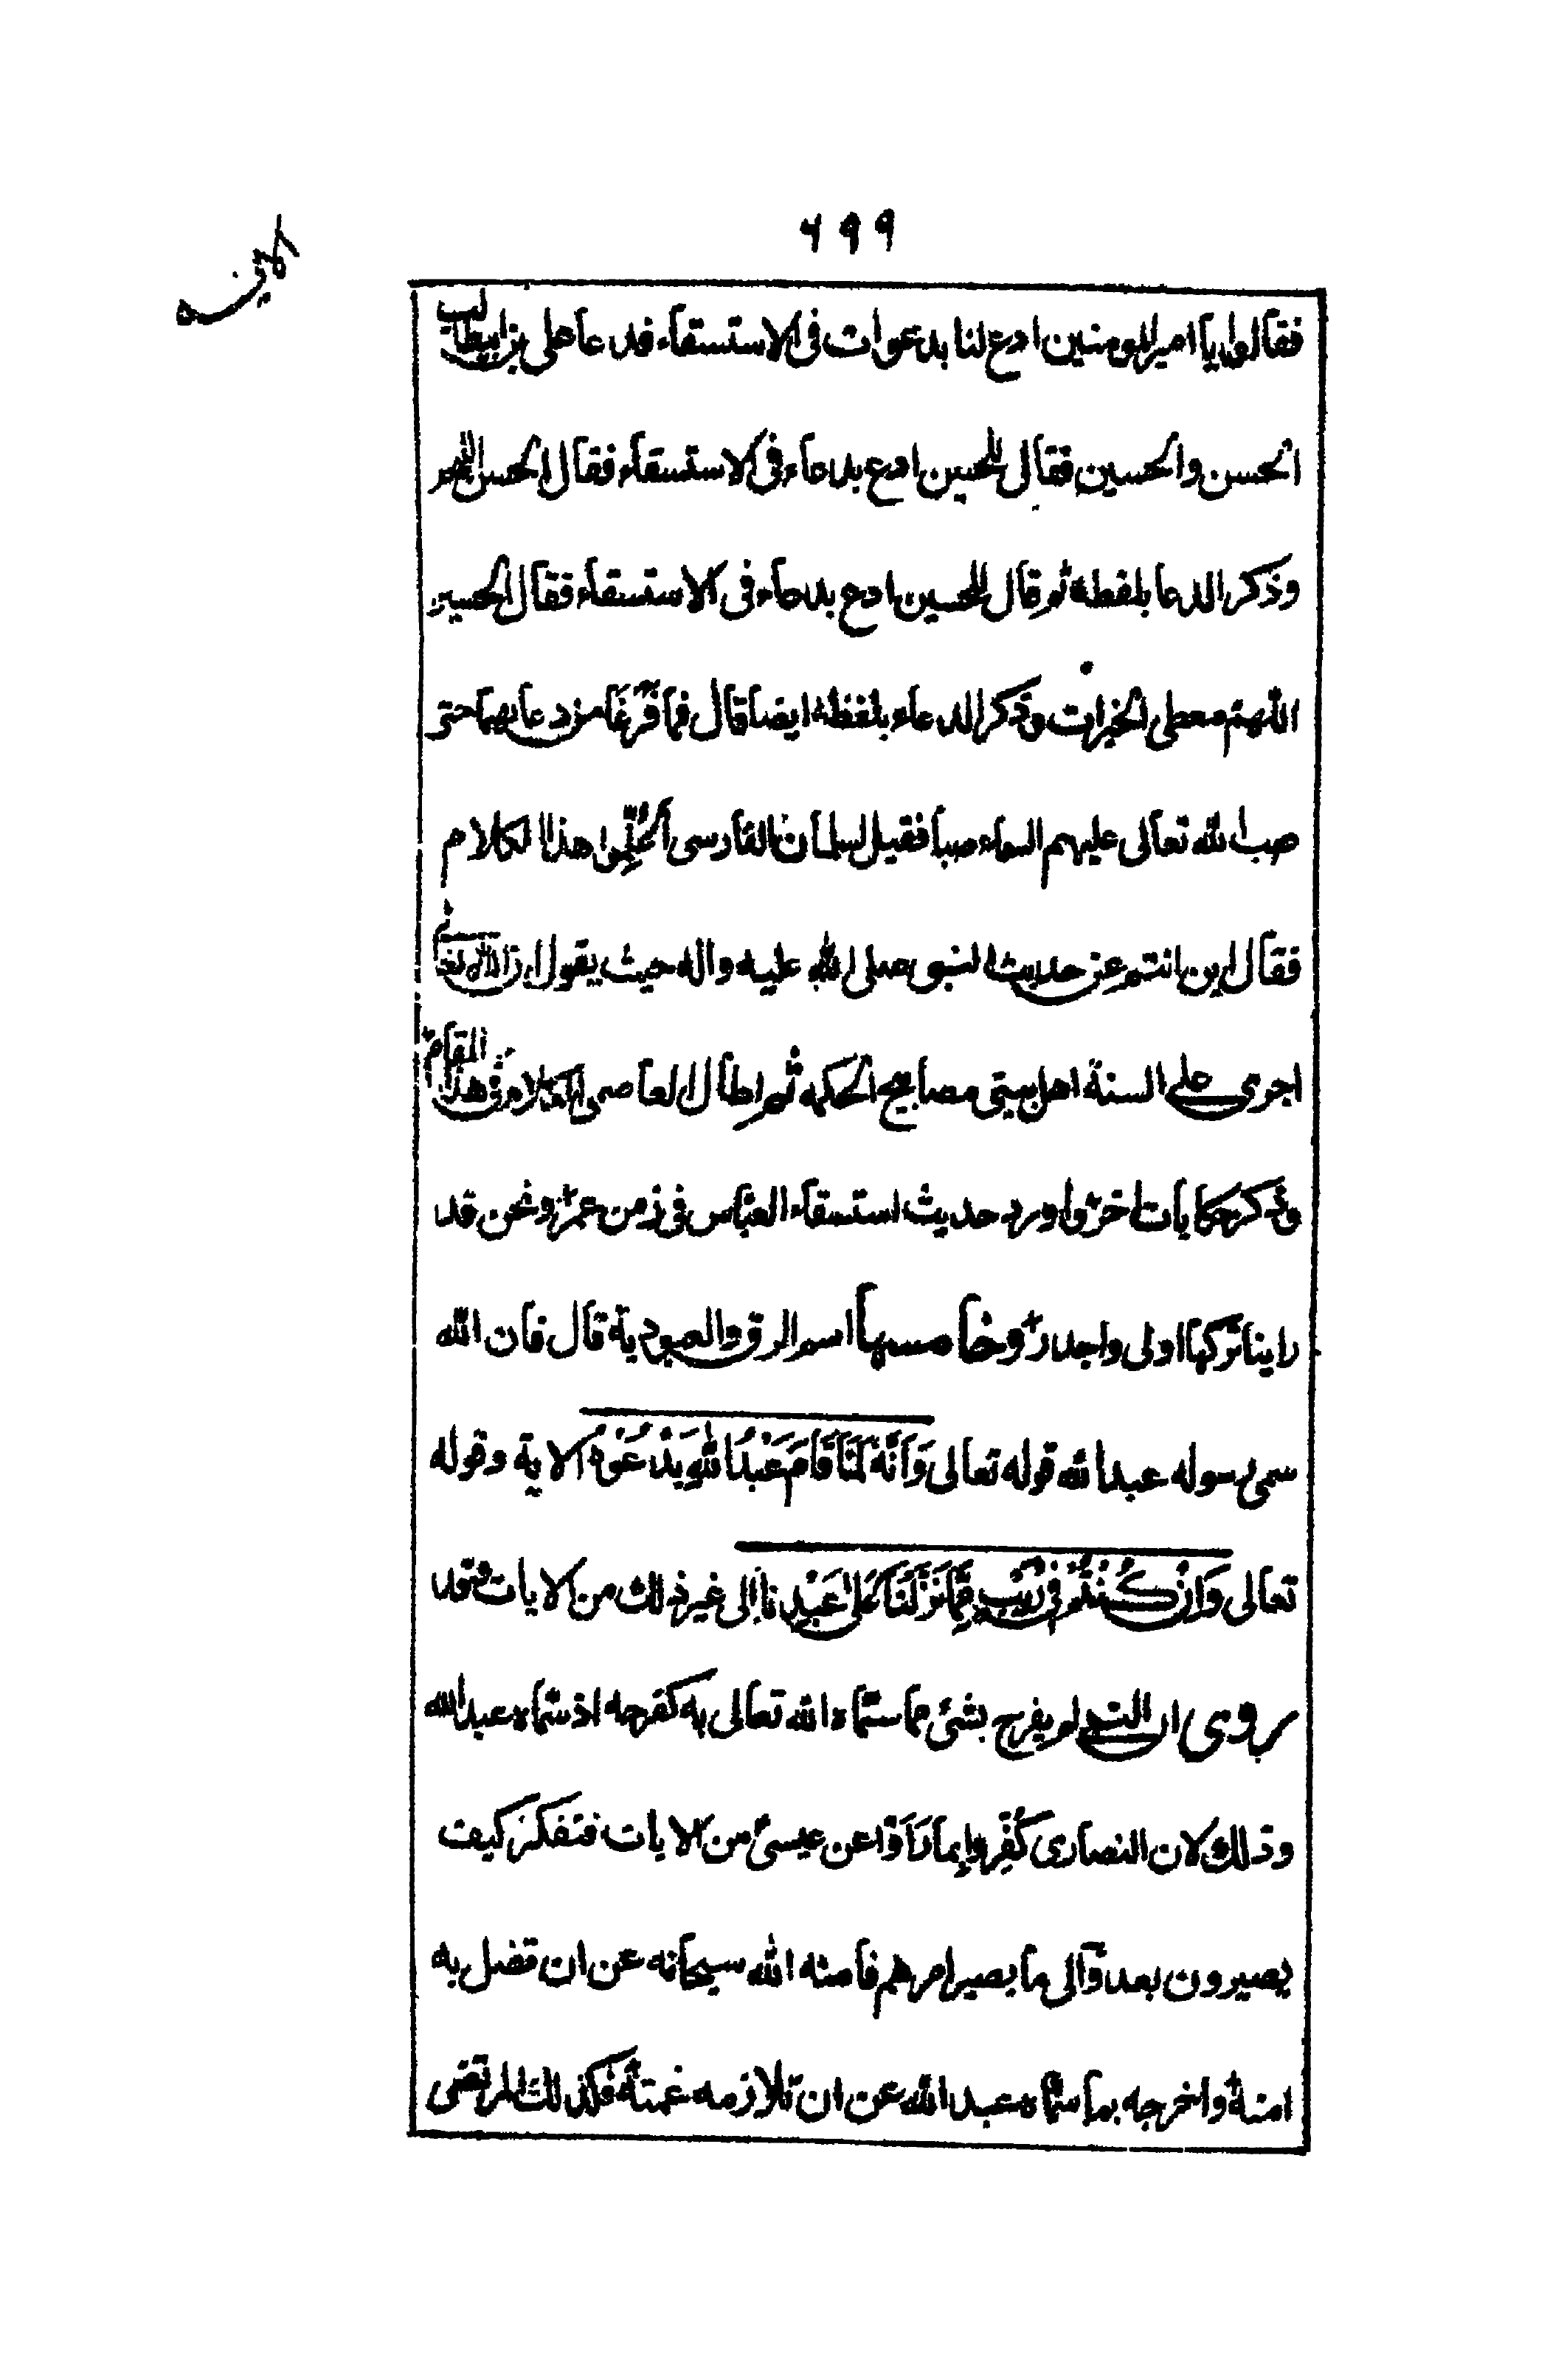 ۶۹۹
فقالوا يا امير المومنين ادع لنا بدعوات فى الاستسقاء فدعا على بن ابيطالب
الحسن والحسين فقال للحسن ادع بدعاء فى الاستسقاء فقال الحسن اللهم
وذكر الدعا بلفظه ثم قال للحسين ادع بدعاء فى الاستسقاء فقال الحسين
اللهم معطى الخيرات وذكر الدعاء بلفظه ايضا قال فما فرغا من دعايهما حتى
صب الله تعالى عليهم السماء صبا فقيل لسلمان الفارسى أعُلِّموا هذا الكلام
فقال اين انتم عن حديث النبى صلى الله عليه واله حيث يقول ان الله تعالى
اجرى على السنة اهل بيتى مصابيح الحكمه ثم اطال العاصمى الكلام فى هذا المقام
وذكر حكايات اخر واورد حديث استسقاء العباس فى زمن عمر ونحن قد
راينا تركها اولى واجدر وخامسها اسم الرق والعبودية قال فان الله
سمى رسوله عبد الله قوله تعالى وَاَنَّهُ لَمَّا قَامَ عَبْدُ اللهِ يَدْعُوْهُ الاية وقوله
تعالى وَاِنْ كُنْتُمْ فِى رَيْبٍ مِمَّا نَزَّلْنَا عَلىٰ عَبْدِنَا الى غير ذلك من الايات وقد
روى ان النبى لم يفرح بشئ مما سمّاه الله تعالى به كفرحه اذ سمّاه عبد الله
وذلك لان النصارى كُفِّروا بما رَاَوْا عن عيسى من الايات فتفكر كيف
يصيرون بعده والى ما يصير امرهم فامنه الله سبحانه عن ان تضل به
امته واخرجه بما سمّاه عبد الله عن ان تلازمه غمته فكذلك المرتضى